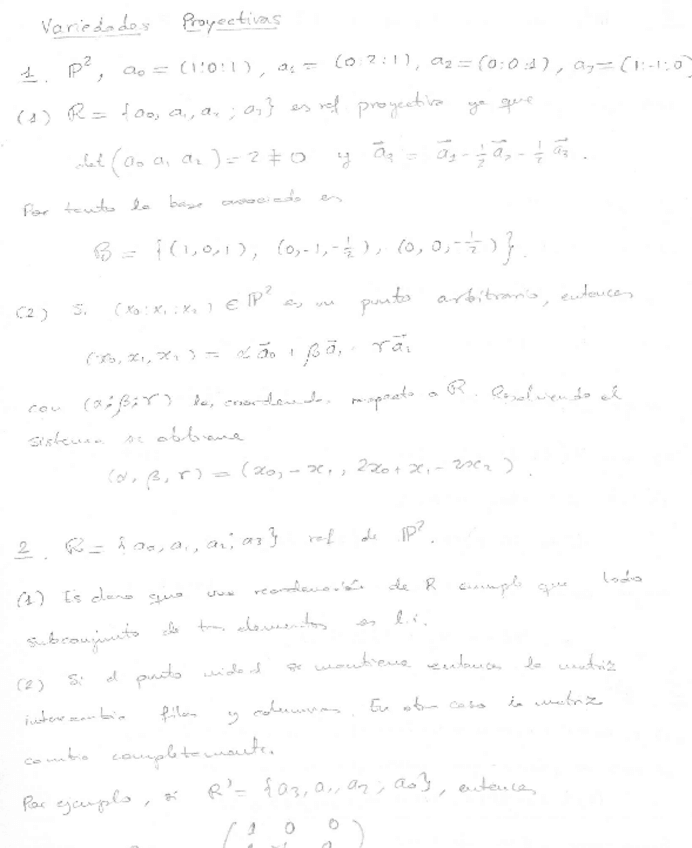 Variedades Proyectivas
1. P², a₀ = (1:0:1), a₁ = (0:2:1), a₂ = (0:0:1), a₃ = (1:-1:0)
(1) R = {a₀, a₁, a₂; a₃} es ref proyectiva ya que
det(a₀ a₁ a₂) = 2 ≠ 0 y a⃗₃ = a⃗₁ - ½ a⃗₂ - ½ a⃗₃.
Por tanto la base asociada es
B = {(1,0,1), (0,-1,-½), (0,0,-½)}.
(2) Si (x₀:x₁:x₂) ∈ P² es un punto arbitrario, entonces
(x₀, x₁, x₂) = α a⃗₀ + β a⃗₁ + γ a⃗₂
con (α:β:γ) las coordenadas respecto a R. Resolviendo el
sistema se obtiene
(α, β, γ) = (x₀, -x₁, 2x₀ + x₁ - 2x₂).
2. R = {a₀, a₁, a₂; a₃} ref de P².
(1) Es claro que una reordenación de R cumple que todo
subconjunto de tres elementos es l.i.
(2) Si el punto unidad se mantiene entonces la matriz
intercambia filas y columnas. En otro caso la matriz
cambia completamente.
Por ejemplo, si R' = {a₃, a₁, a₂; a₀}, entonces
1 0 0